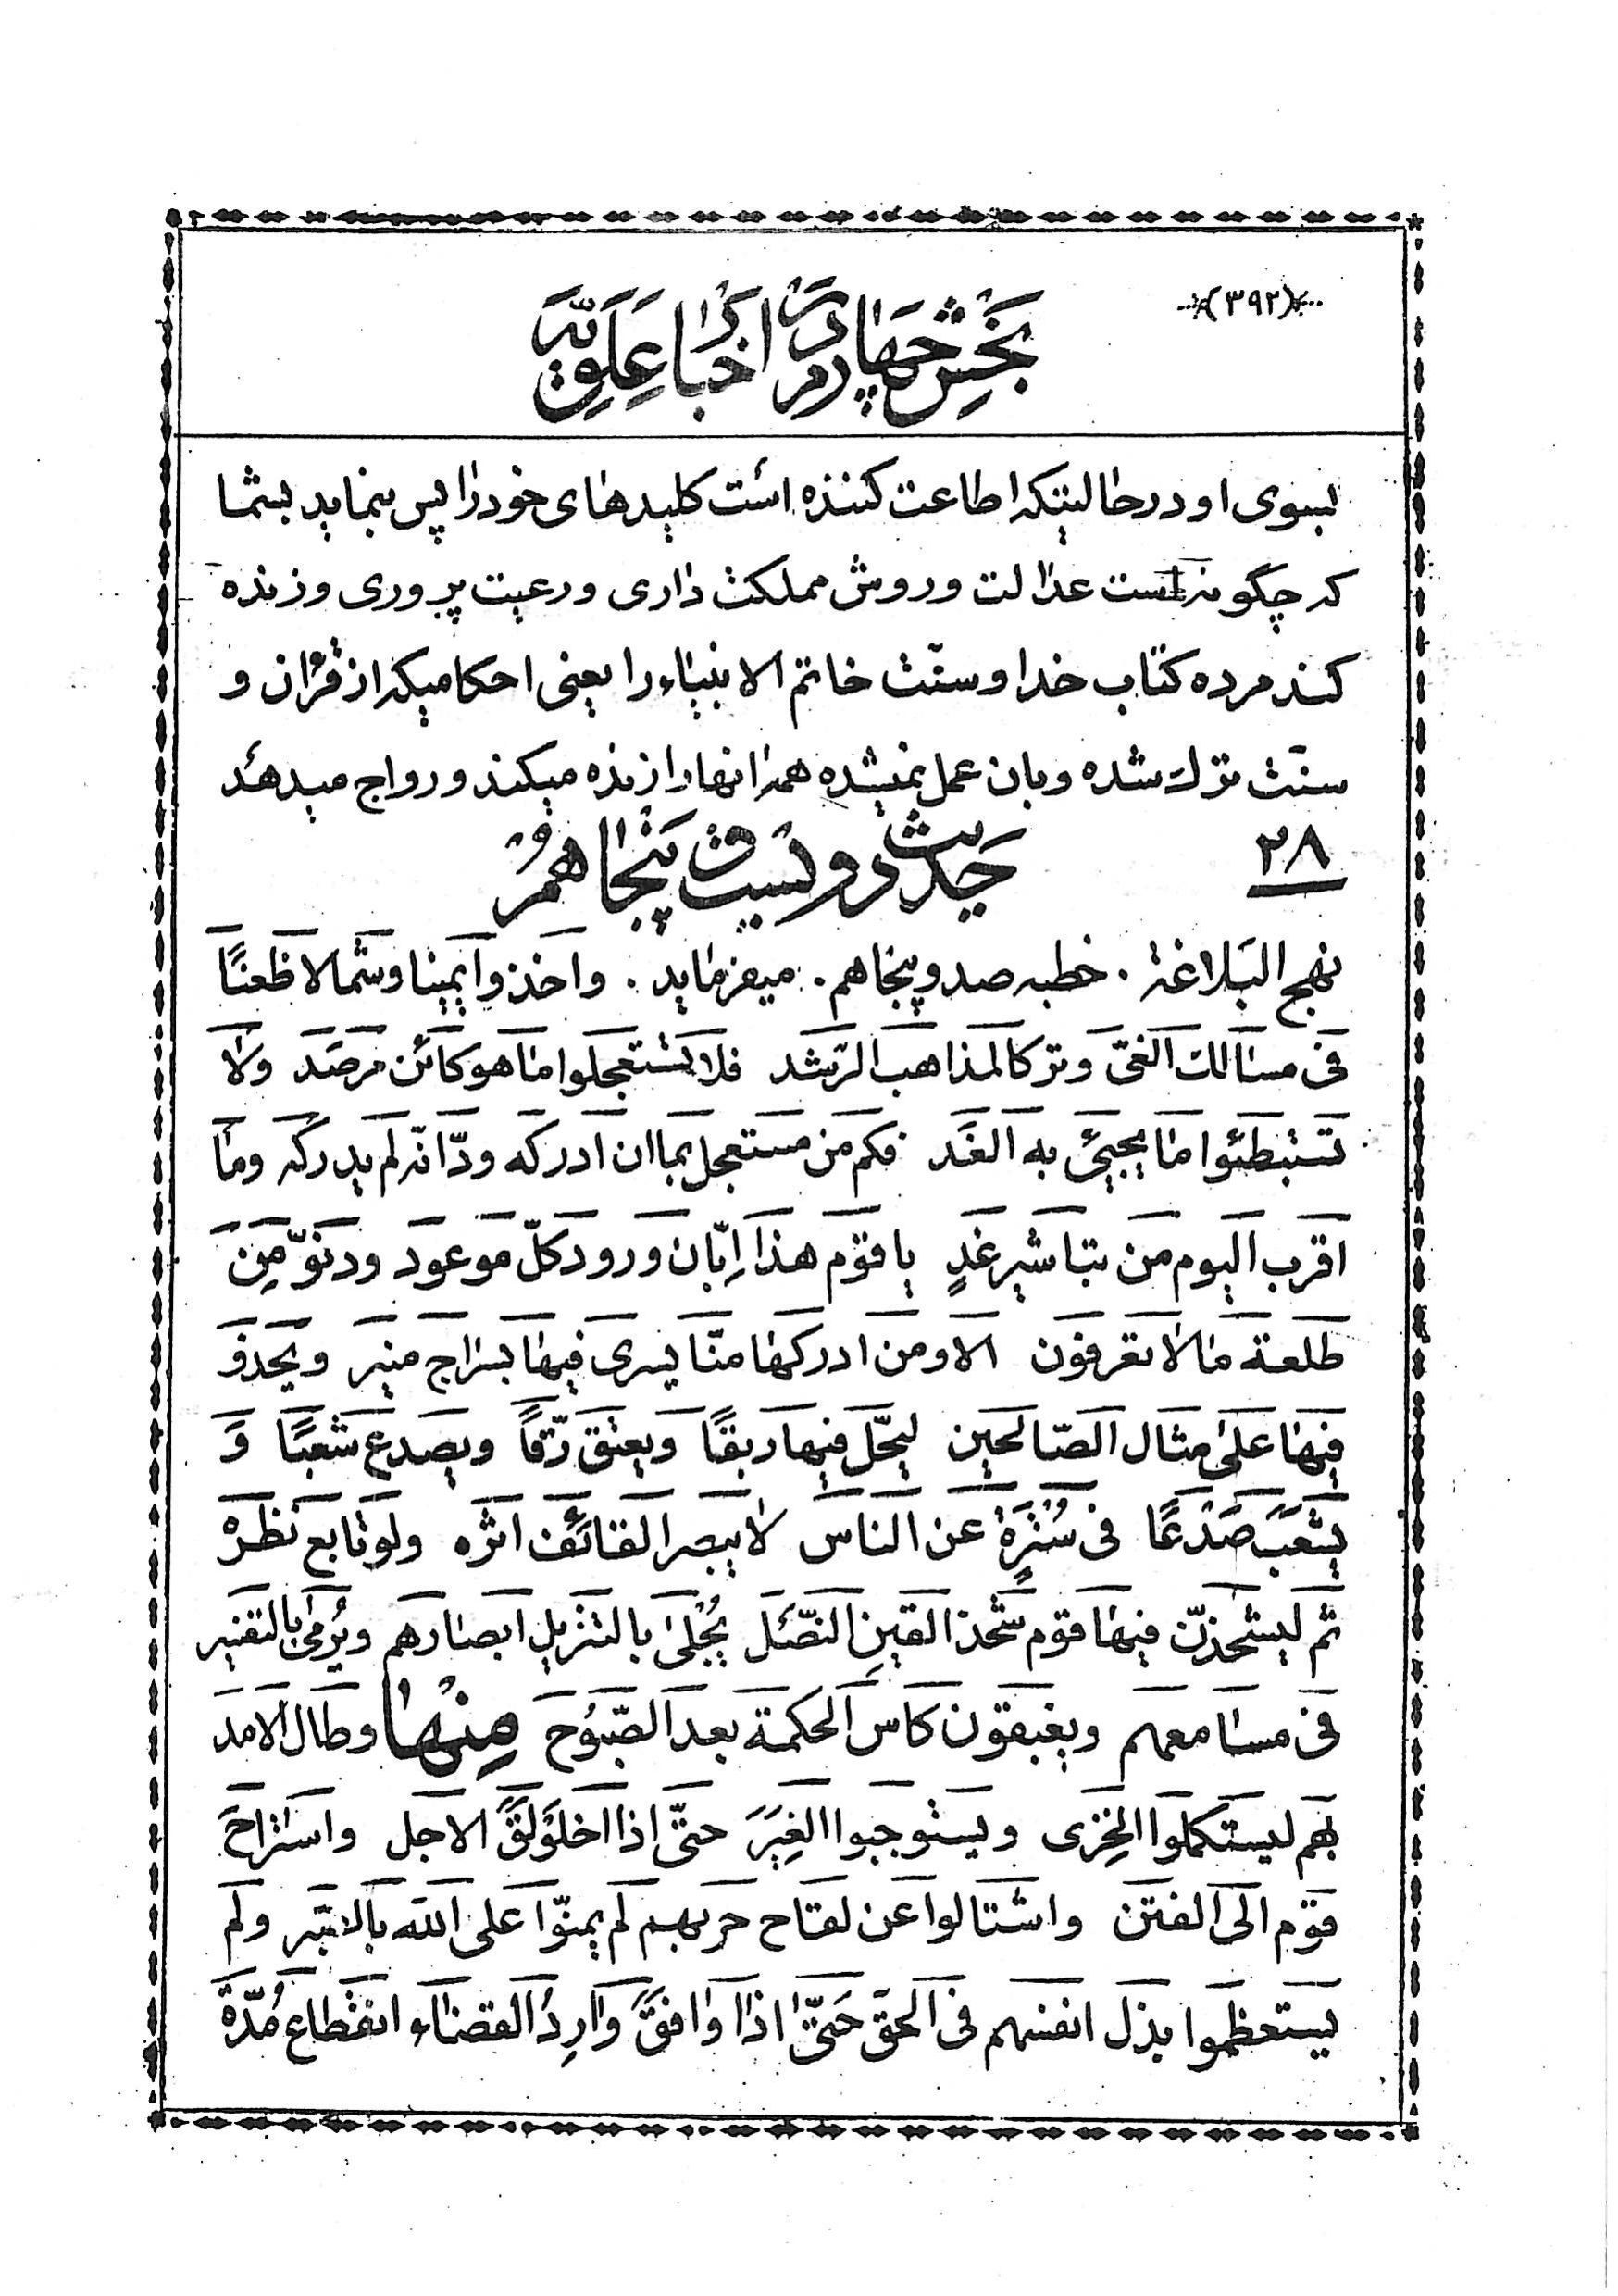 (۳۹۲)
بخش چهارم در اخبار علویّه
بسوی او در حالیتیکه اطاعت کننده است کلیدهای خود را پس بنماید بشما
که چگونه است عدالت و روش مملکت داری و رعیت پروری و زنده
کند مرده کتاب خدا و سنّت خاتم الانبیاء را یعنی احکامیکه از قرآن و
سنّت ترک شده و بان عمل نمیشده همه انها را زنده میکند و رواج میدهد
۲۸
حدیث دویست و پنجاهم
نهج البلاغة . خطبه صد و پنجاهم . میفرماید . واخذوا یمینا وشمالا ظعنًا
فی مسالك الغیّ وترکا لمذاهب الرّشد فلا تستعجلوا ما هو کائن مرصد ولا
تستبطئوا ما یجیئ به الغد فکم من مستعجل بما ان ادرکه ودّ انّه لم یدرکه وما
اقرب الیوم من تباشیر غدٍ یا قوم هذا اِبّان ورود کلّ موعود ودنوّ مِن
طلعة ما لا تعرفون الا ومن ادرکها منّا یسری فیها بسراج منیر ویحذو
فیها علی مثال الصّالحین لیحّل فیها ربقًا ویعتق رّقاً ویصدع شعبًا و
یشعب صدعًا فی سُترةٍ عن الناس لا یبصر القائف اثره ولو تابع نظره
ثم لیشحذنّ فیها قوم شحذ القینِ النّصّل یُجلی بالتنزیل ابصارهم ویُرمی بالتفسیر
فی مسامعهم ویغبقون کاس الحکمة بعد الصّبوُح منها وطال الامد
بهم لیستکملوا الخِزی ویستوجبوا الغِیَر حتّی اذا اخلَولَقَ الاجل واستراح
قوم الی الفتن واشتالوا عن لقاح حربهم لم یمنّوا علی الله بالصّبر ولم
یستعظموا بذل انفسهم فی الحق حَتّیٰ اذا وافَقَ وارِدُ القضاء انقطاع مُدّة